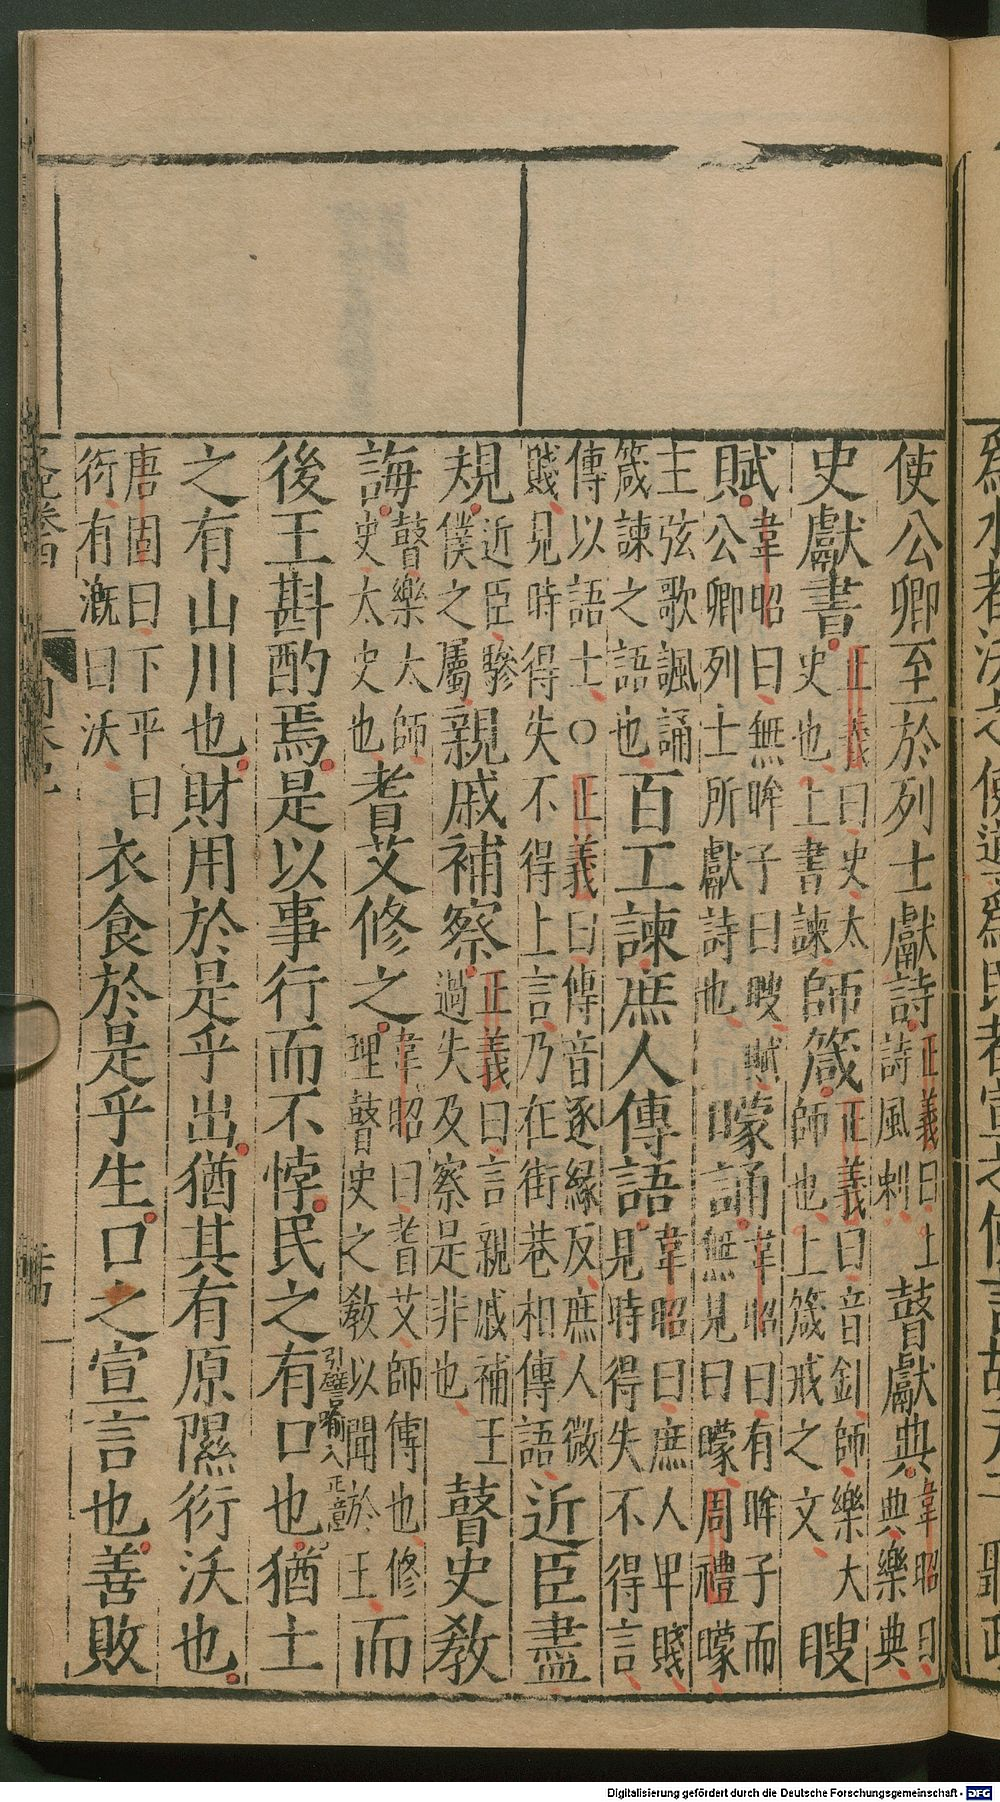 使公卿至於列士獻詩正義曰上詩風刺瞽獻典韋昭曰典樂典
史獻書正義曰史太史也上書諫師箴正義曰音釗師樂大師也上箴戒之文瞍
賦韋昭曰無眸子曰瞍賦公卿列士所獻詩也矇誦韋昭曰有眸子而無見曰矇周禮矇
主弦歌諷誦箴諫之語也百工諫庶人傳語韋昭曰庶人卑賤見時得失不得言
傳以語士○正義曰傳音逐緣反庶人微賤見時得失不得上言乃在街巷相傳語近臣盡
規近臣驂僕之屬親戚補察正義曰言親戚補王過失及察是非也瞽史教
誨瞽樂太師史太史也耆艾修之韋昭曰耆艾師傅也修理瞽史之教以聞於王而
引譬喻入正意
後王斟酌焉是以事行而不悖民之有口也猶土
之有山川也財用於是乎出猶其有原隰衍沃也
唐固曰下平曰衍有溉曰沃衣食於是乎生口之宣言也善敗
Digitalisierung gefördert durch die Deutsche Forschungsgemeinschaft - DFG